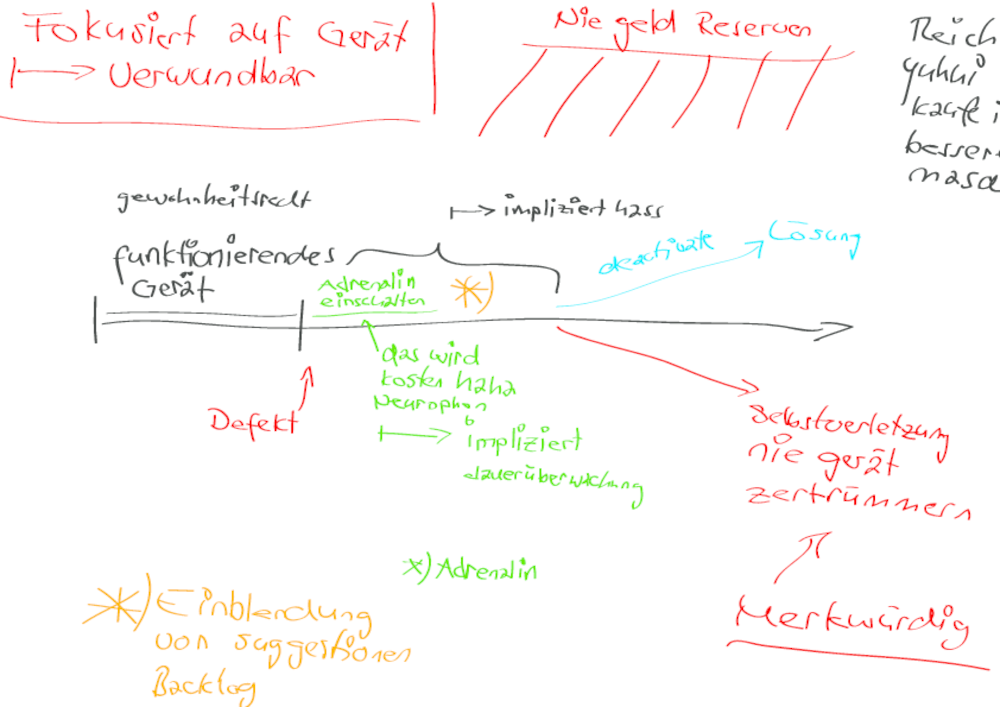 Fokusiert auf Gerät
Verwundbar
Nie geld Reserven
Reich
yuhui
kaufe i
besser
masc
gewohnheitsrecht
impliziert hass
funktionierendes
Gerät
Adrenalin
einschalten
*)
deactivate
Lösung
das wird
kosten haha
Neurophon
impliziert
dauerüberwachung
Defekt
Selbstverletzung
nie gerät
zertrümmern
x) Adrenalin
Merkwürdig
*) Einblendung
von suggestionen
Backlog